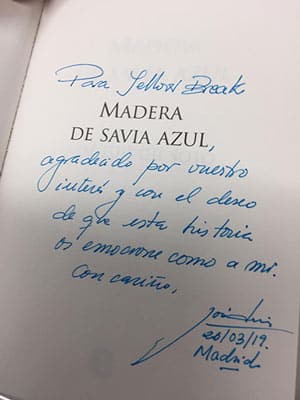 Para Yellow Break
MADERA
DE SAVIA AZUL,
agradecido por vuestro
interés y con el deseo
de que esta historia
os emocione como a mí.
Con cariño,
20/03/19.
Madrid